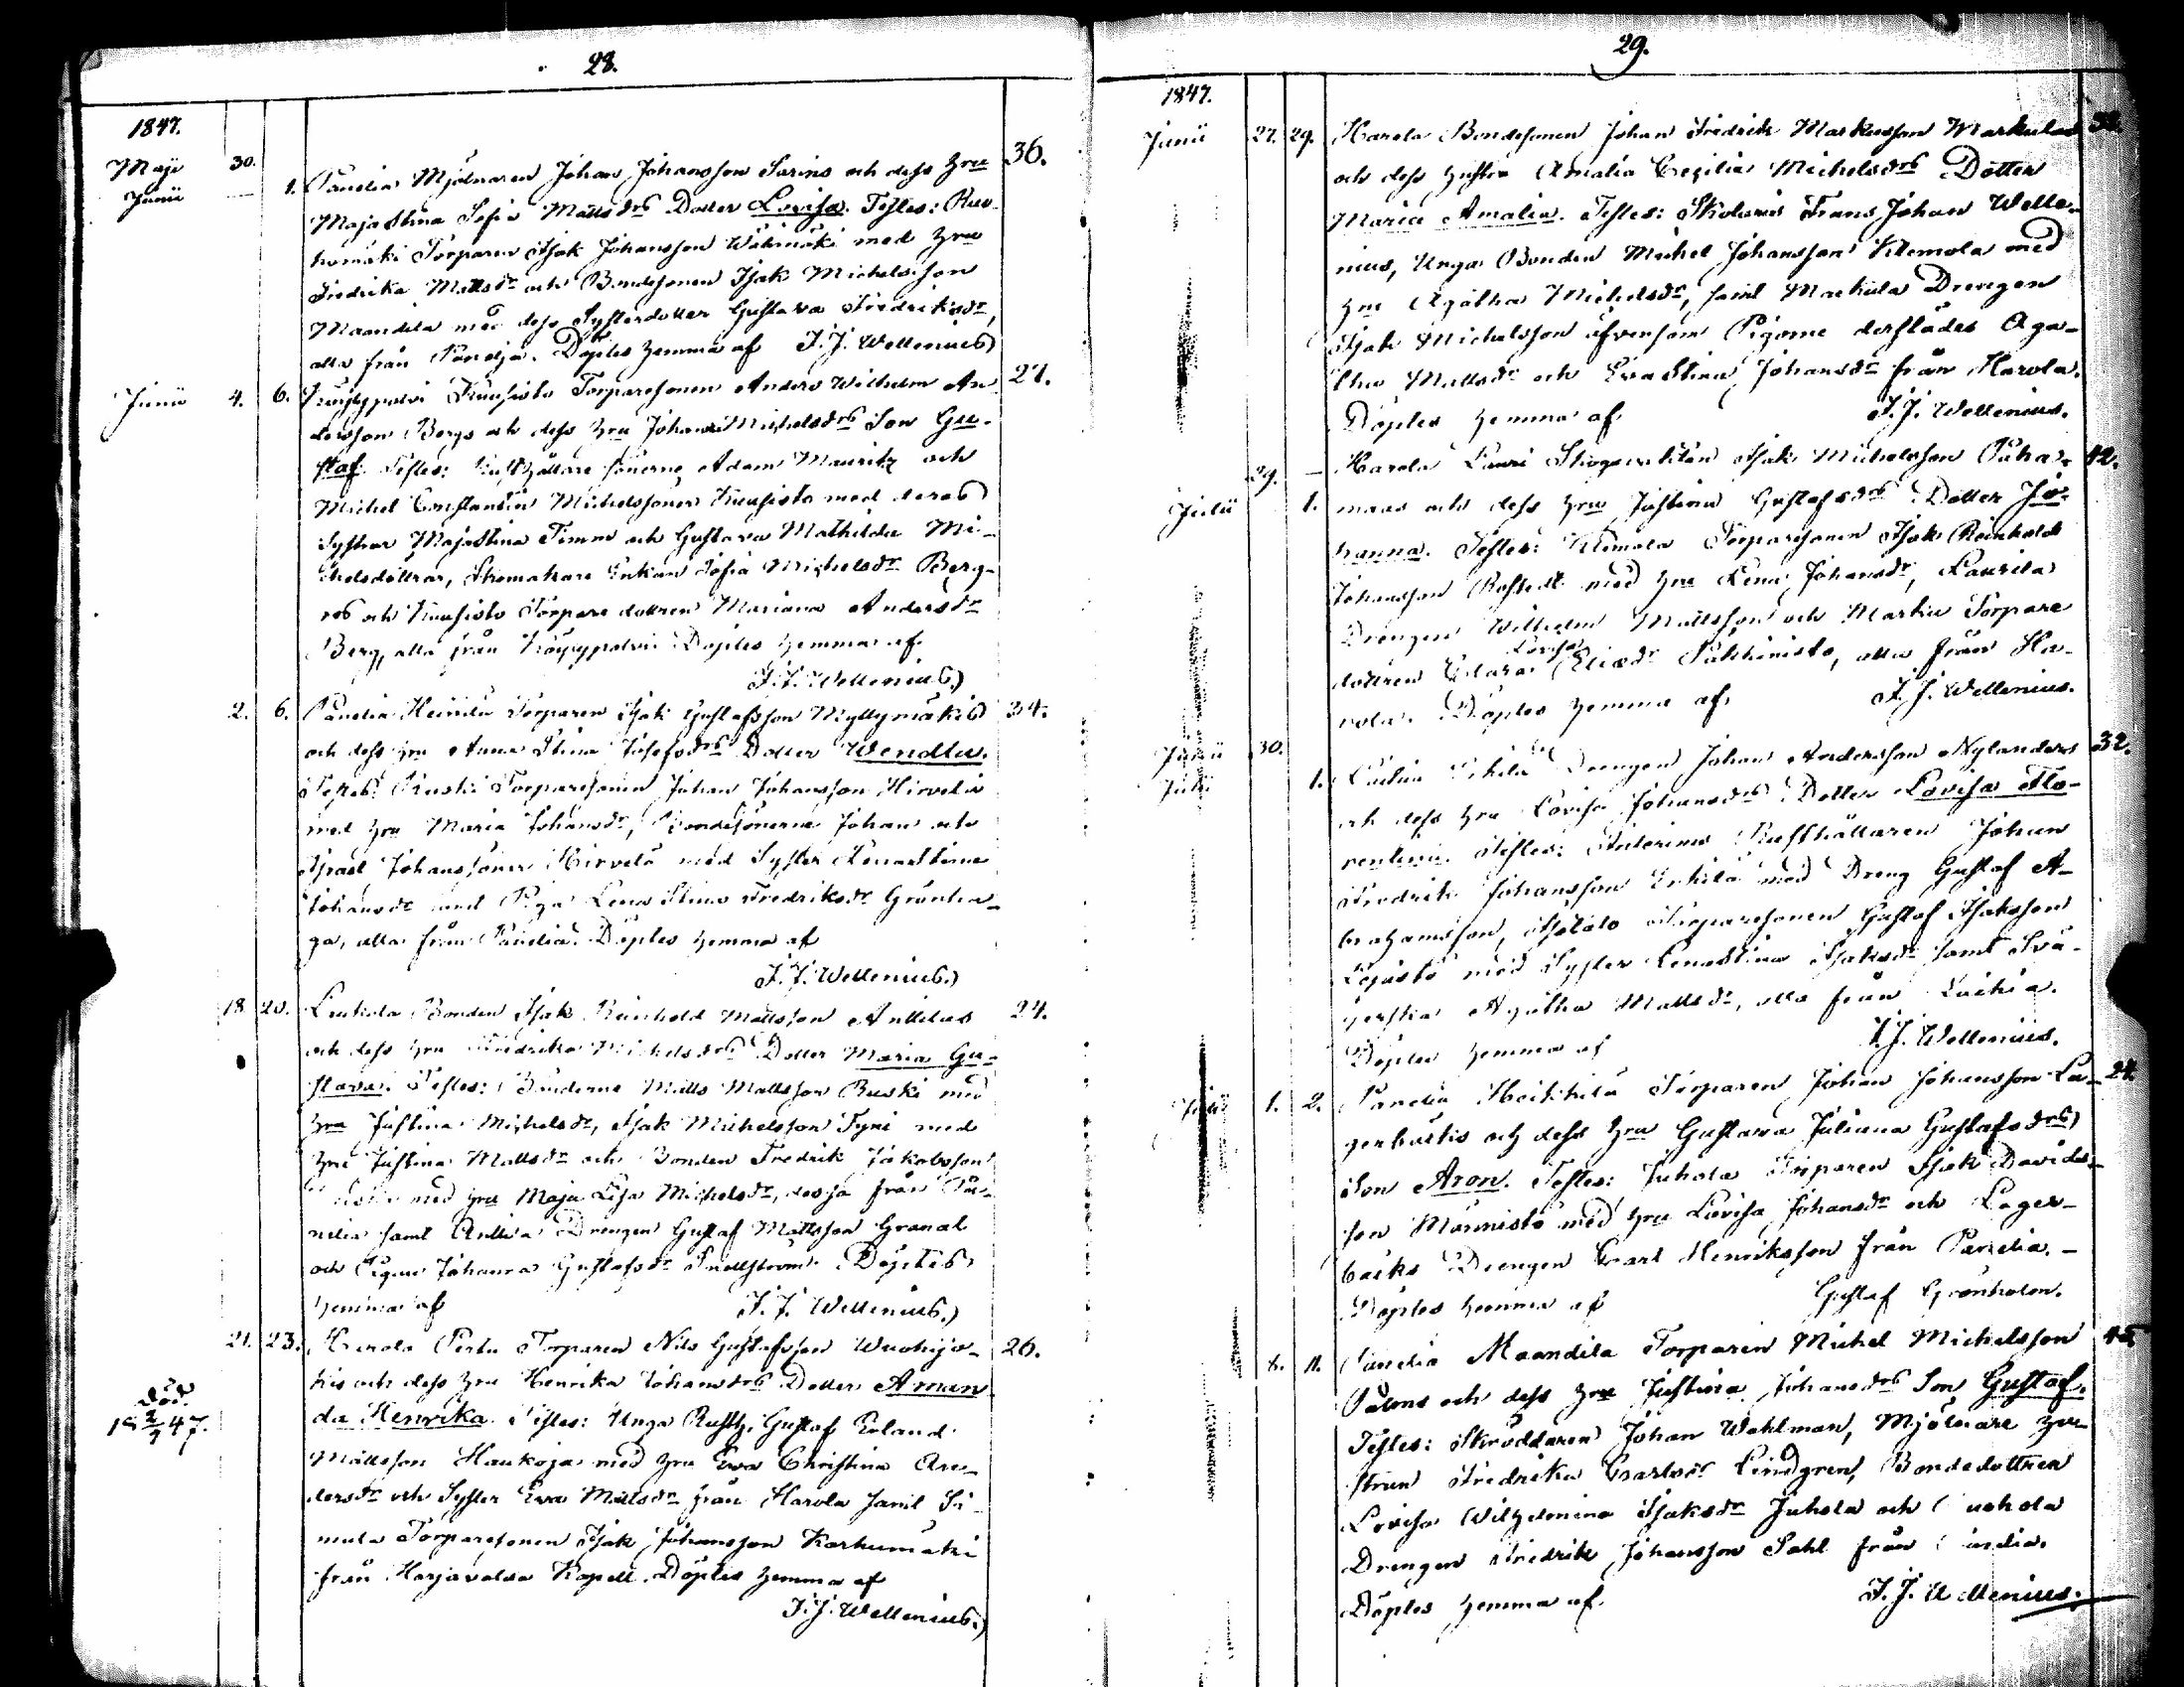 28.
1847.
Maji 30.
Junii 1. Panelia Mjölnaren Johan Johansson Sarins och dess Hru 36.
Maja Stina Sofia Mattsdrs Dotter Lovisa. Testes:
Torparen Isak Johansson med Hru
Fredrika Mattsdr och Bondesonen Isak Michelsson
Maandila med dess Systerdotter Gustava Fredriksdr,
alla från Panelia. Döptes hemma af F. J. Wellenius
Junii 4. 6. Köylypolvi Kuusisto Torparesonen Anders Wilhelm An- 27.
dersson Bergs och dess Hru Johanna Michelsdrs Son Gu-
staf. Testes: Rusthållare sönerne Adam Mauritz och
Michel Constantin Michelssöner Kuusisto med deras
Systrar Majastina Timm och Gustava Mathilda Mi-
chelsdöttrar, Skomakare Enkan Sofia Michelsdr Berg-
ros och Kuusisto Torpare dottren Mariana Andersdr
Berg, alla från Köylypolvi. Döptes hemma af
F. J. Wellenius
2. 6. Panelia Heinilä Torparen Isak Gustafsson Myllymäkis 34.
och dess Hru Anna Stina Josefsdrs Dotter Wendla.
Testes: Ruski Torparesonen Johan Johansson Hirvelä
med Hru Maria Johansdr, Bondesönerne Johan och
Israel Johanssöner Hirvelä med Syster Annastina
Johansdr samt Piga Lena Stina Fredriksdr Grönha-
ga, alla från Panelia. Döptes hemma af
F. J. Wellenius
18. 20. Leukola Bonden Isak Reinhold Mattsson Anttilas 24.
och dess Hru Fredrika Michelsdrs Dotter Maria Gu-
stava. Testes: Bönderne Matts Mattsson Ruski med
Hru Justina Michelsdr, Isak Michelsson Tyni med
Hru Justina Mattsdr och Bonden Fredrik Jakobsson
med Hru Maja Lisa Michelsdr, dessa från Pa-
nelia samt Anttila Drengen Gustaf Mattsson Granat
och Pigan Johanna Gustafsdr Snellström. Döptes
hemma af F. J. Wellenius
21. 23. Harola Perttu Torparen Nils Gustafsson Wuohijo- 26.
kis och dess Hru Henrika Johansdrs Dotter Aman
död
18 2/7 47.
da Henrika. Testes: Unga Rusth. Gustaf Erland
Mattsson Haukoja med Hru Eva Christina An-
dersdr och Syster Eva Mattsdr från Harola samt Si-
mula Torparesonen Isak Johansson Karhumäki
från Harjavalda Kapell. Döptes hemma af
F. J. Wellenius
29.
1847.
Junii 27. 29. Harola Bondesonen Johan Fredrik Markusson Markulas 32.
och dess hustru Amalia Cecilia Michelsdrs Dotter
Maria Amalia. Testes: Skolaris Frans Johan Welle-
nius, Unga Bonden Michel Johansson Klemola med
Hru Agatha Michelsdr, samt Markula Drengen
Isak Michelsson äfvensom Pigorne derstädes Aga-
tha Mattsdr och Eva Stina Johansdr från Harola.
Döptes hemma af F. J. Wellenius.
29. - Harola Lauri Skogvaktaren Isak Michelsson Puha- 42.
Julii 1. maas och dess Hru Justina Gustafsdrs Dotter Jo-
hanna. Testes: Klemola Torparesonen Isak Reinhold
Johansson Rostedt med Hru Lena Johansdr, Laurila
Drengen Wilhelm Mattsson och Marku Torpare
dottren Clara Lovisa Eliedr Sukkinisto, alla från Ha-
rola. Döptes hemma af F. J. Wellenius.
Junii 30.
Julii 1. Drengen Johan Andersson Nylanders 32.
och dess Hru Lovisa Johansdrs Dotter Lovisa Flo-
rentina. Testes: Rusthållaren Johan
Fredrik Johansson Erkilä med Dreng Gustaf A-
brahamsson, Isotalo Torparesonen Gustaf Isaksson
Lejusto med Syster Lenastina Isaksdr samt Svä-
gerskan Agatha Mattsdr, alla från
Döptes hemma af F. J. Wellenius.
Julii 1. 2. Panelia Heikkilä Torparen Johan Johansson La- 24.
gerbäcks och dess Hru Gustava Juliana Gustafsdrs
Son Aron. Testes: Juhola Torparen Isak Davids-
son Männistö med Hru Lovisa Johansdr och Lager-
bäcks Drengen Carl Henriksson från Panelia.
Döptes hemma af Gustaf Grönholm.
8. 11. Panelia Maandila Torparen Michel Michelsson 45.
Palons och dess Hru Justina Johansdrs Son Gustaf.
Testes: Skräddaren Johan Wahlman, Mjölnare hu-
strun Fredrika Carlsdr Lindgren, Bondedottren
Lovisa Wilhelmina Isaksdr Juhola och
Drengen Fredrik Johansson Sahl från Panelia.
Döptes hemma af. F. J. Wellenius.